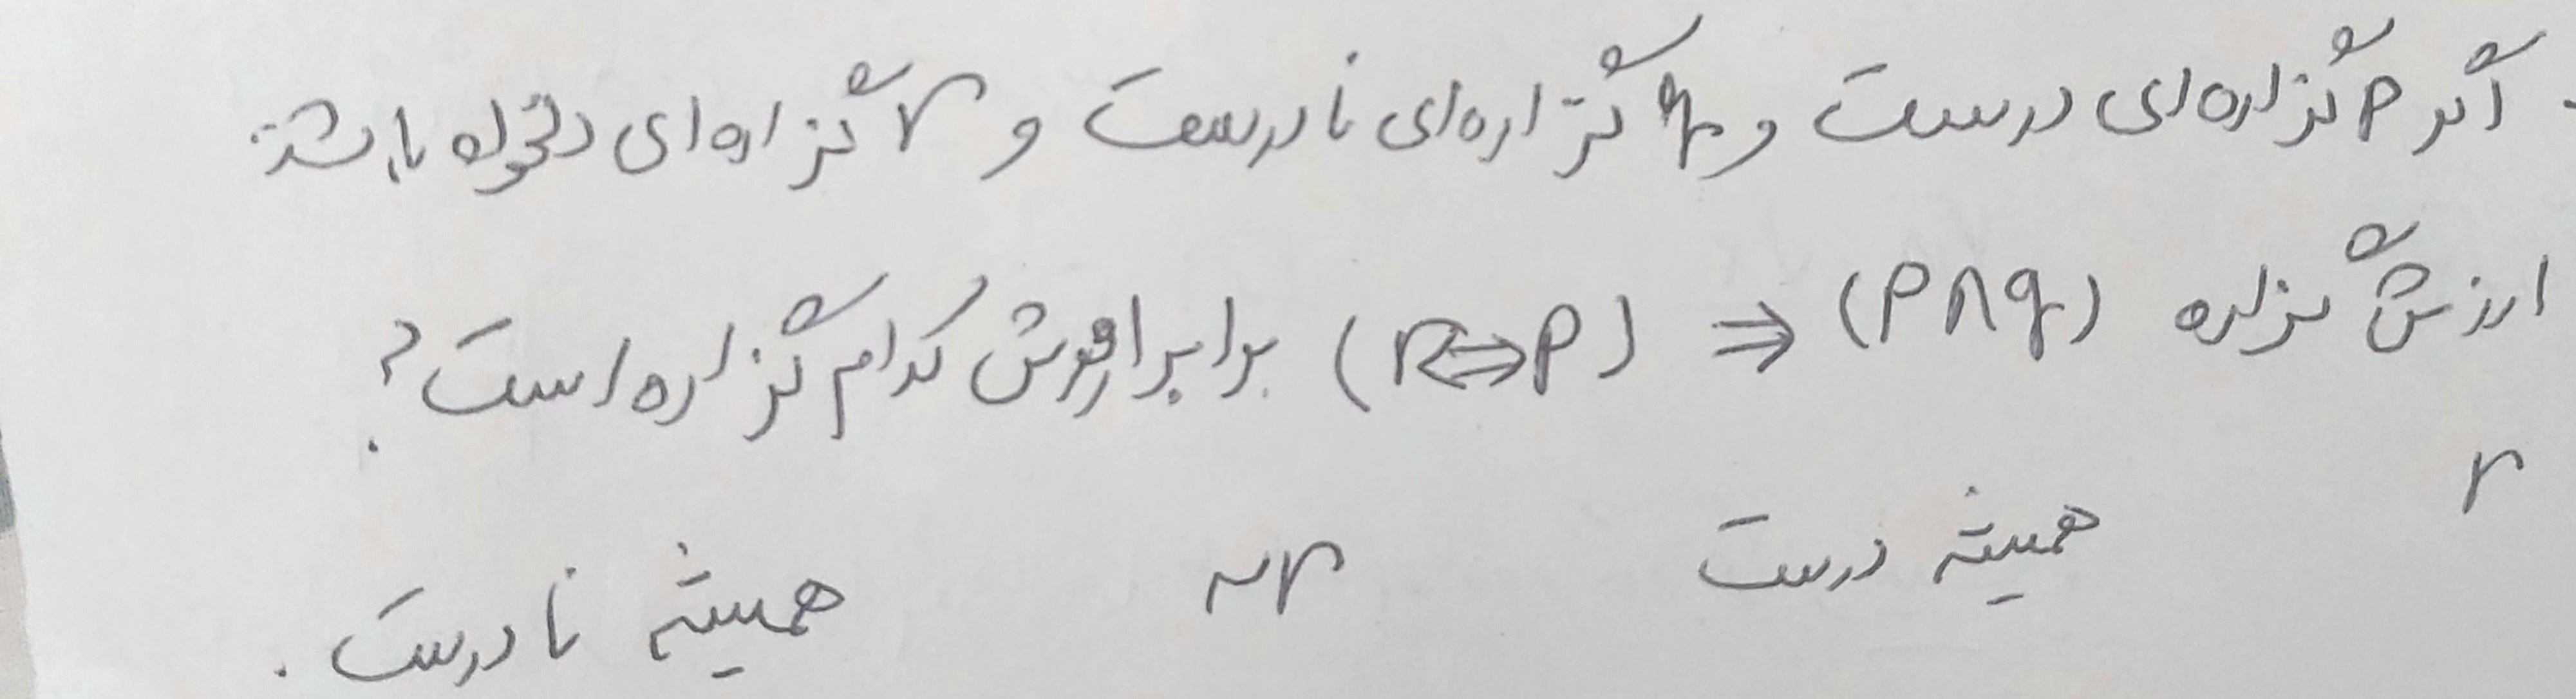 . اگر p گزاره‌ای درست و q گزاره‌ای نادرست و r گزاره‌ای دلخواه باشد
ارزش گزاره (r⇔p) ⇒ (p∧q) برابر ارزش کدام گزاره است؟
r همیشه درست ~r همیشه نادرست .